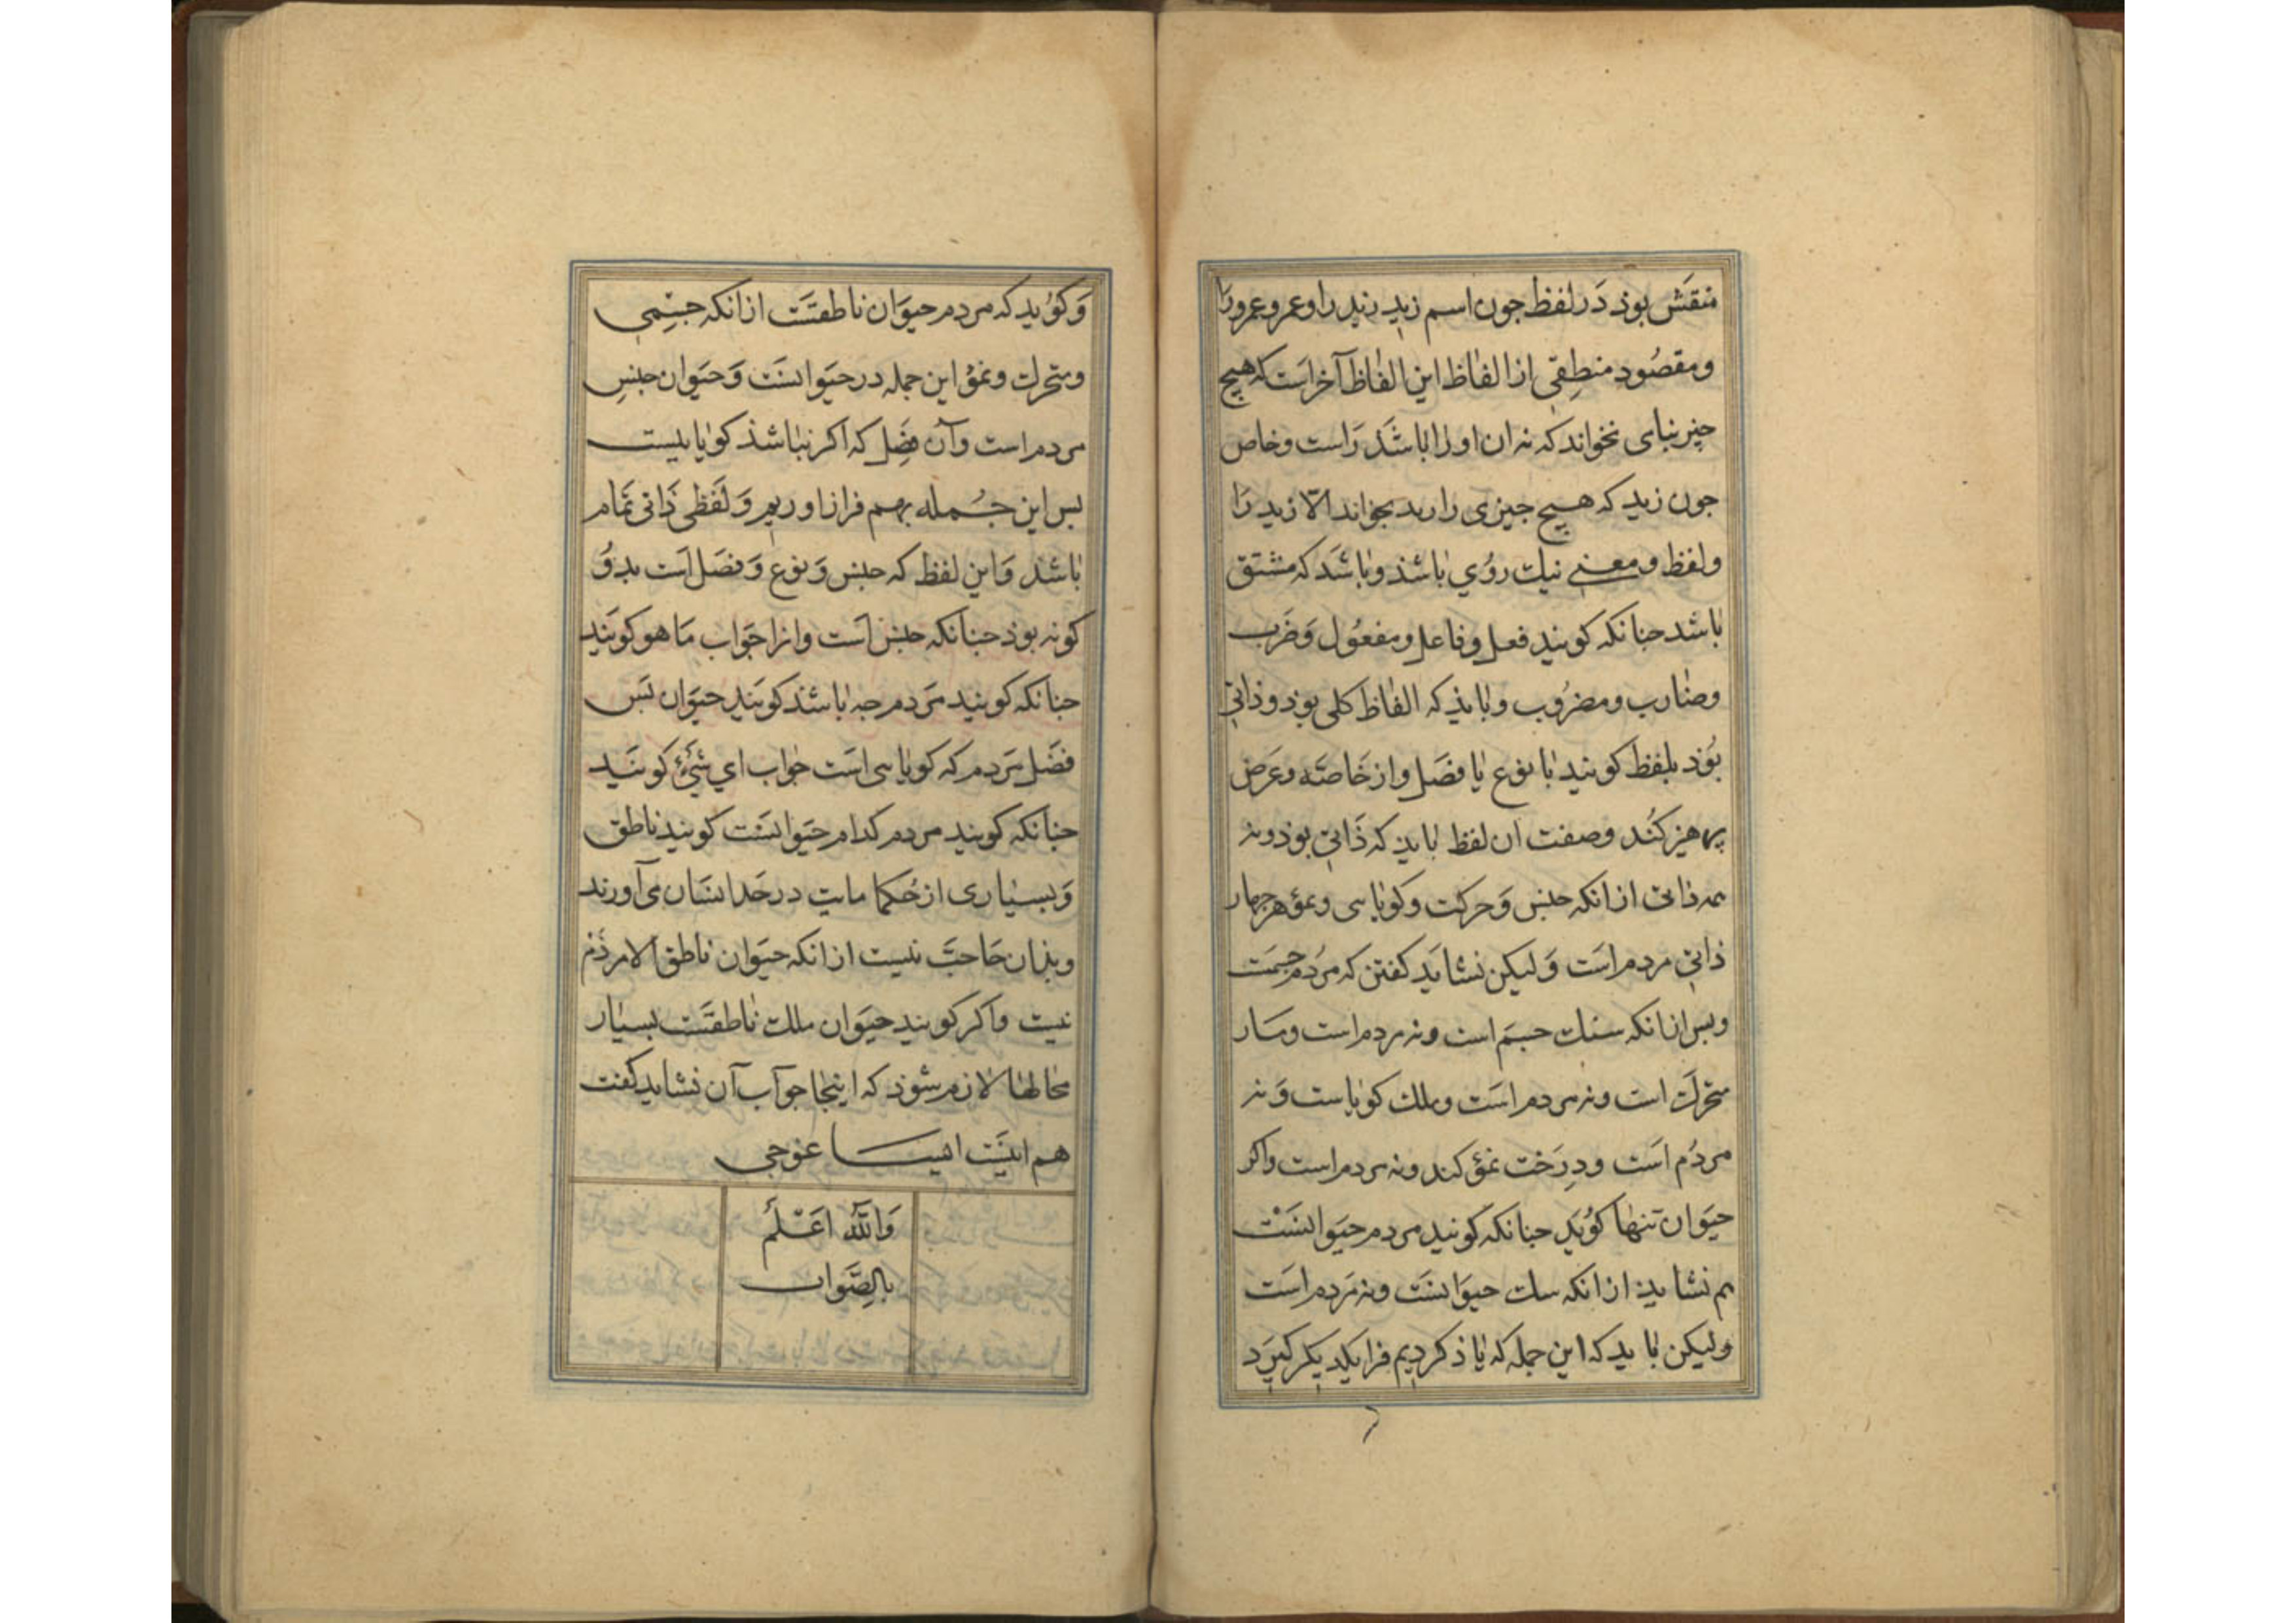 منقش بوذ در لفظ جون اسم زید زید را و عمرو عمرو را
و مقصود منطقی از الفاظ این الفاظ آخر است که هیچ
جیز بنای نخواند که نه ان او را باشد راست و خاص
جون زید که هیچ جیزی را بخواند الا زید را
و لفظ و معنی نیک روی باشذ و باشد که مشتق
باشد جنانکه کویند فعل و فاعل و مفعول و ضرب
و ضارب و مضروب و باید که الفاظ کلی بوذ و ذاتی
بوذ بلفظ کویند با نوع یا فصل و از خاصه و عرض
پرهیز کند و صفت ان لفظ باید که ذاتی بوذ و نه
همه ذاتی از انکه جنس و حرکت و کویاسی و نمو هر جهار
ذاتی مردم است و لیکن نشاید کفتن که مردم جسمت
و بس از انکه سنک جسم است و نه مردم است و مار
متحرک است و نه مردم است و ملک کویاست و نه
مردم است و درخت نمو کند و نه مردم است و اکر
حیوان تنها کوید جنانکه کویند مردم حیوانست
هم نشاید از انکه سک حیوانست و نه مردم است
و لیکن باید که این جمله که یاذ کردیم فرا یکدیکر کیرد
و کوید که مردم حیوان ناطقست از انکه جسمی
و متحرک و نمو این جمله در حیوانست و حیوان جنس
مردم است و آن فصل که اکر نباشذ کویا نیست
بس این جمله بهم فراز اوریم و لفظی ذاتی تمام
باشذ و این لفظ که جنس و نوع و فصل است بدو
کونه بوذ جنانکه جنس است و انرا جواب ما هو کویند
جنانکه کویند مردم جه باشذ کویند حیوان بس
فصل مردم که کویاسی است جواب ای شیء کویند
جنانکه کویند مردم کدام حیوانست کویند ناطق
و بسیاری از حکما مایت در حد انسان می آورند
و بذان حاجت نیست از انکه حیوان ناطق الا مردم
نیست و اکر کویند حیوان ملک ناطقست بسیار
محالها لازم شوذ که اینجا جواب آن نشاید کفت
هم اینست ایسا غوجی
والله اعلم
بالصواب